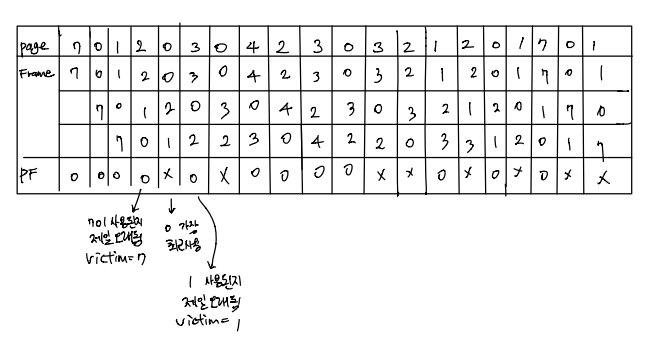 page 7 0 1 2 0 3 0 4 2 3 0 3 2 1 2 0 1 7 0 1
Frame 7 0 1 2 0 3 0 4 2 3 0 3 2 1 2 0 1 7 0 1
7 0 1 2 0 3 0 4 2 3 0 3 2 1 2 0 1 7 0
7 0 1 2 2 3 0 4 2 2 0 3 3 1 2 0 1 7
PF o o o o x o x o o o o x x o x o x o x x
701 사용된지
제일 오래됨
victim=7
0 가장
최근사용
1 사용된지
제일 오래됨
victim= 1